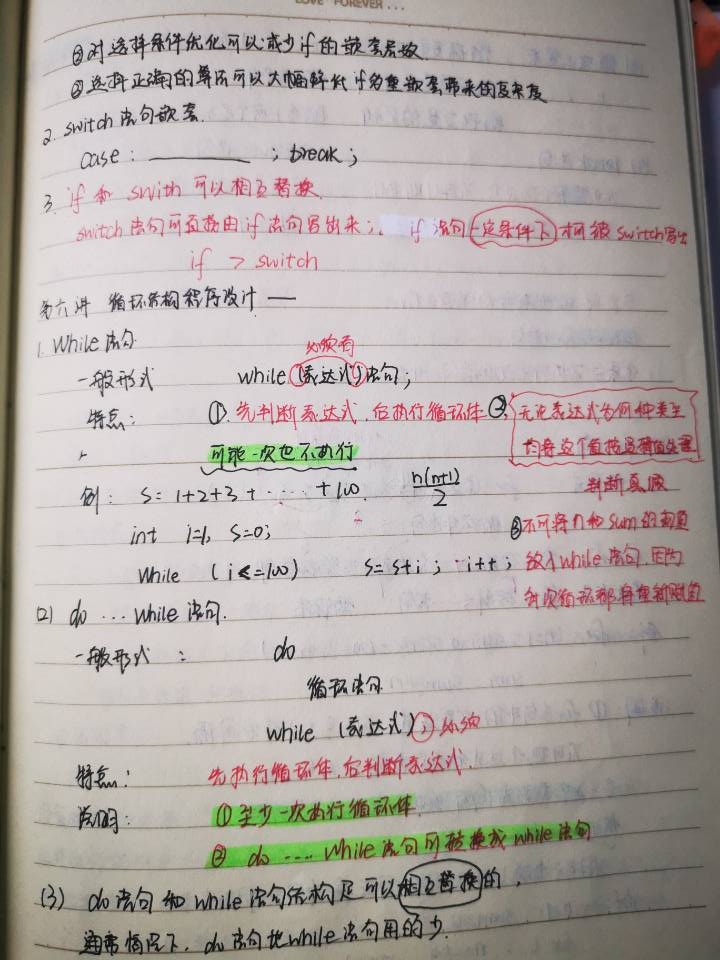 LOVE FOREVER ...
②对选择条件优化可以减少if的嵌套层数
③选择正确的算法可以大幅降低if多重嵌套带来的复杂度
2. switch语句嵌套.
case : ________ ; break ;
3. if 和 swith 可以相互替换
switch语句可直接由if语句写出来; if 语句一定条件下才可被switch写出
if > switch
第六讲 循环结构程序设计 —
1. While语句
必须有
一般形式 while (表达式) 语句 ;
特点: ①. 先判断表达式, 后执行循环体 ② 无论表达式为何种类型
可能一次也不执行 均将这个值按逻辑值处理
例: S= 1+2+3+ ····· +100. n(n+1)/2 判断真假
int i=1, S=0; ③不可将n和sum的初值
While (i<=100) S=S+i ; i++ ; 放入while语句, 因为
每次循环都将重新赋值
(2) do ··· while 语句.
一般形式 : do
循环语句
while (表达式) ; 必须
特点: 先执行循环体, 后判断表达式.
说明: ①至少一次执行循环体.
② do ····· While语句可转换成while语句
(3) do语句和while语句结构是可以相互替换的,
通常情况下, do语句比while语句用的少.